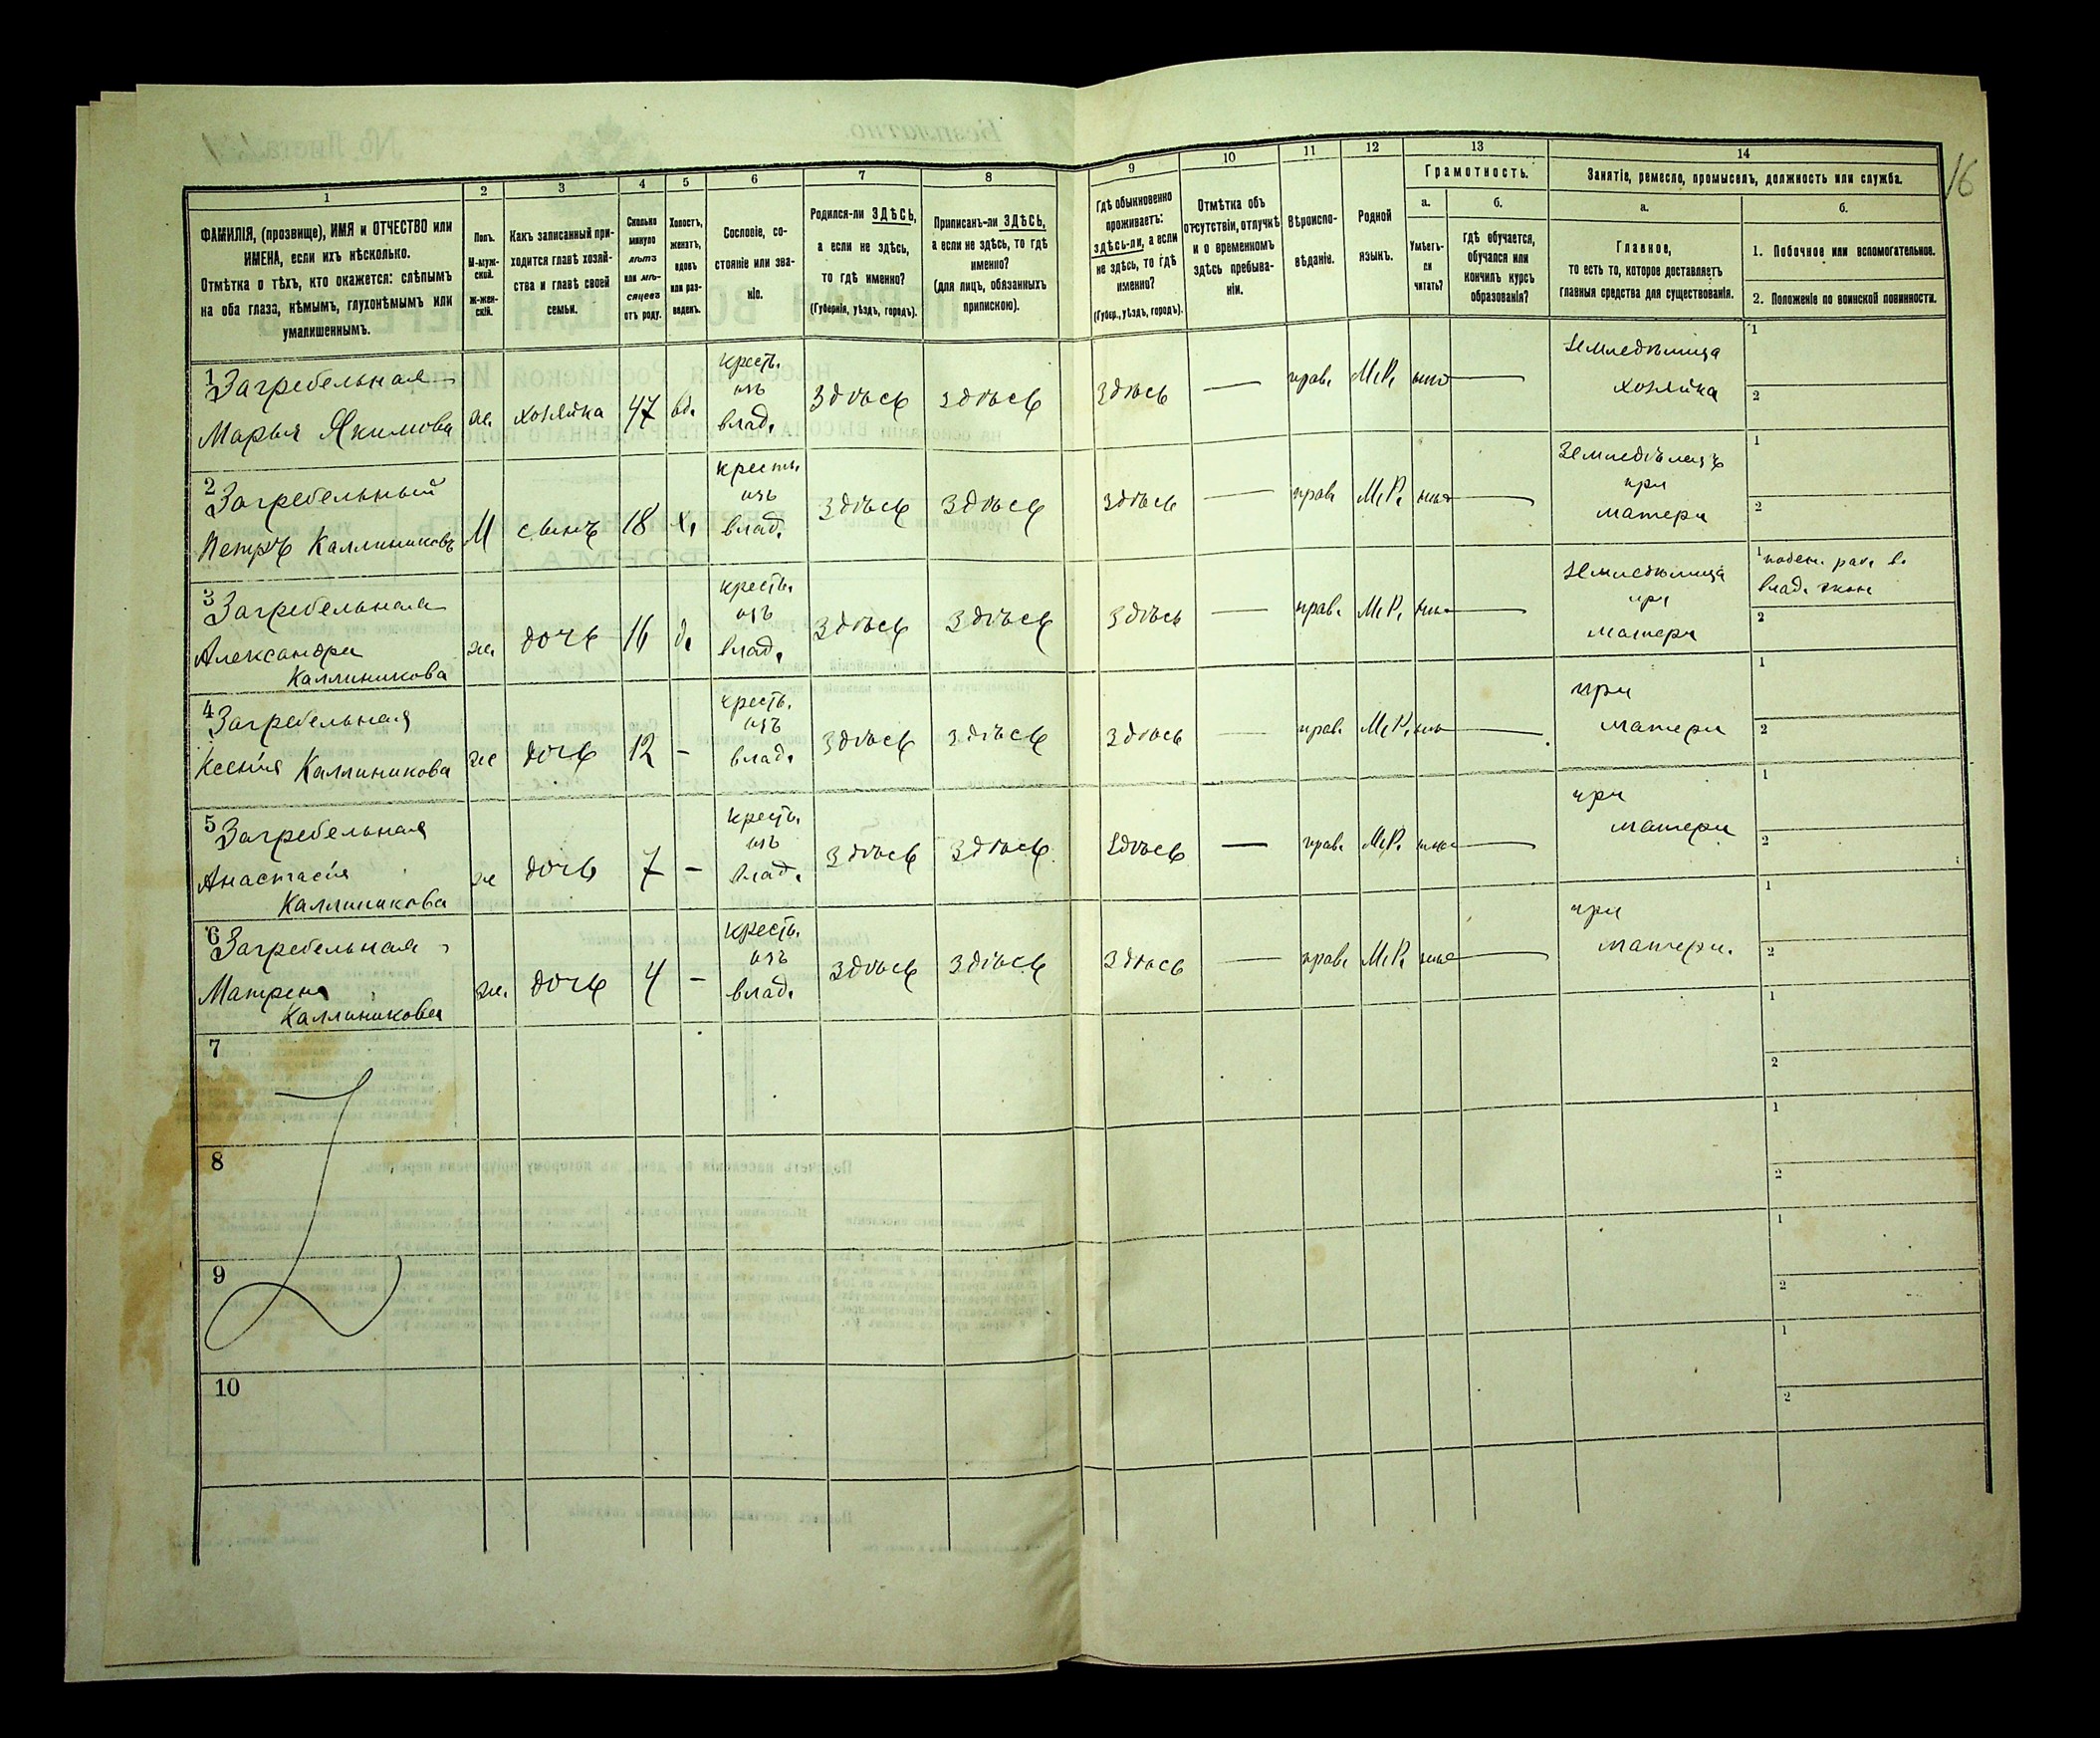 16
1 2 3 4 5 6 7 8 9 10 11 12 13 14
ФАМИЛІЯ, (прозвище), ИМЯ и ОТЧЕСТВО или
ИМЕНА, если ихъ нѣсколько.
Отмѣтка о тѣхъ, кто окажется: слѣпымъ
на оба глаза, нѣмымъ, глухонѣмымъ или
умалишеннымъ.
Полъ.
М-муж-
ской.
Ж-жен-
скій.
Какъ записанный при-
ходится главѣ хозяй-
ства и главѣ своей
семьи.
Сколько
минуло
лѣтъ
или мѣ-
сяцевъ
отъ роду.
Холостъ,
женатъ,
вдовъ
или раз-
веденъ.
Сословіе, со-
стояніе или зва-
ніе.
Родился-ли ЗДѢСЬ,
а если не здѣсь,
то гдѣ именно?
(Губернія, уѣздъ, городъ).
Приписанъ-ли ЗДѢСЬ,
а если не здѣсь, то гдѣ
именно?
(для лицъ, обязанныхъ
припискою).
Гдѣ обыкновенно
проживаетъ:
здѣсь-ли, а если
не здѣсь, то гдѣ
именно?
(Губер., уѣздъ, городъ).
Отмѣтка объ
отсутствіи, отлучкѣ
и о временномъ
здѣсь пребыва-
ніи.
Вѣроиспо-
вѣданіе.
Родной
языкъ.
Грамотность.
а.
Умѣетъ-
ли
читать?
б.
Гдѣ обучается,
обучался или
кончилъ курсъ
образованія?
Занятіе, ремесло, промыселъ, должность или служба.
а.
Главное,
то есть то, которое доставляетъ
главныя средства для существованія.
б.
1. Побочное или вспомогательное.
2. Положеніе по воинской повинности.
1 Загребельная
Марья Якимова
ж.
хозяйка
47
вд.
крест.
изъ
влад.
здѣсь
здѣсь
здѣсь
—
прав.
М.Р.
—
Земледѣлица
хозяйка
1
2
2 Загребельный
Петръ Каллиниковъ
М
сынъ
18
х.
крест.
изъ
влад.
здѣсь
здѣсь
здѣсь
—
прав.
М.Р.
—
Земледѣлецъ
при
матери
1
2
3 Загребельная
Александра
Каллиникова
ж.
дочь
16
д.
крест.
изъ
влад.
здѣсь
здѣсь
здѣсь
—
прав.
М.Р.
—
Земледѣлица
при
матери
1 поден. раб. в.
влад. экон.
2
4 Загребельная
Ксенія Каллиникова
ж
дочь
12
-
крест.
изъ
влад.
здѣсь
здѣсь
здѣсь
—
прав.
М.Р.
—
при
матери
1
2
5 Загребельная
Анастасія
Каллиникова
ж
дочь
7
-
крест.
изъ
влад.
здѣсь
здѣсь
здѣсь
—
прав.
М.Р.
—
при
матери
1
2
6 Загребельная
Матрена
Каллиникова
ж.
дочь
4
-
крест.
изъ
влад.
здѣсь
здѣсь
здѣсь
—
прав.
М.Р.
—
при
матери.
1
2
7
1
2
8
1
2
9
1
2
10
1
2